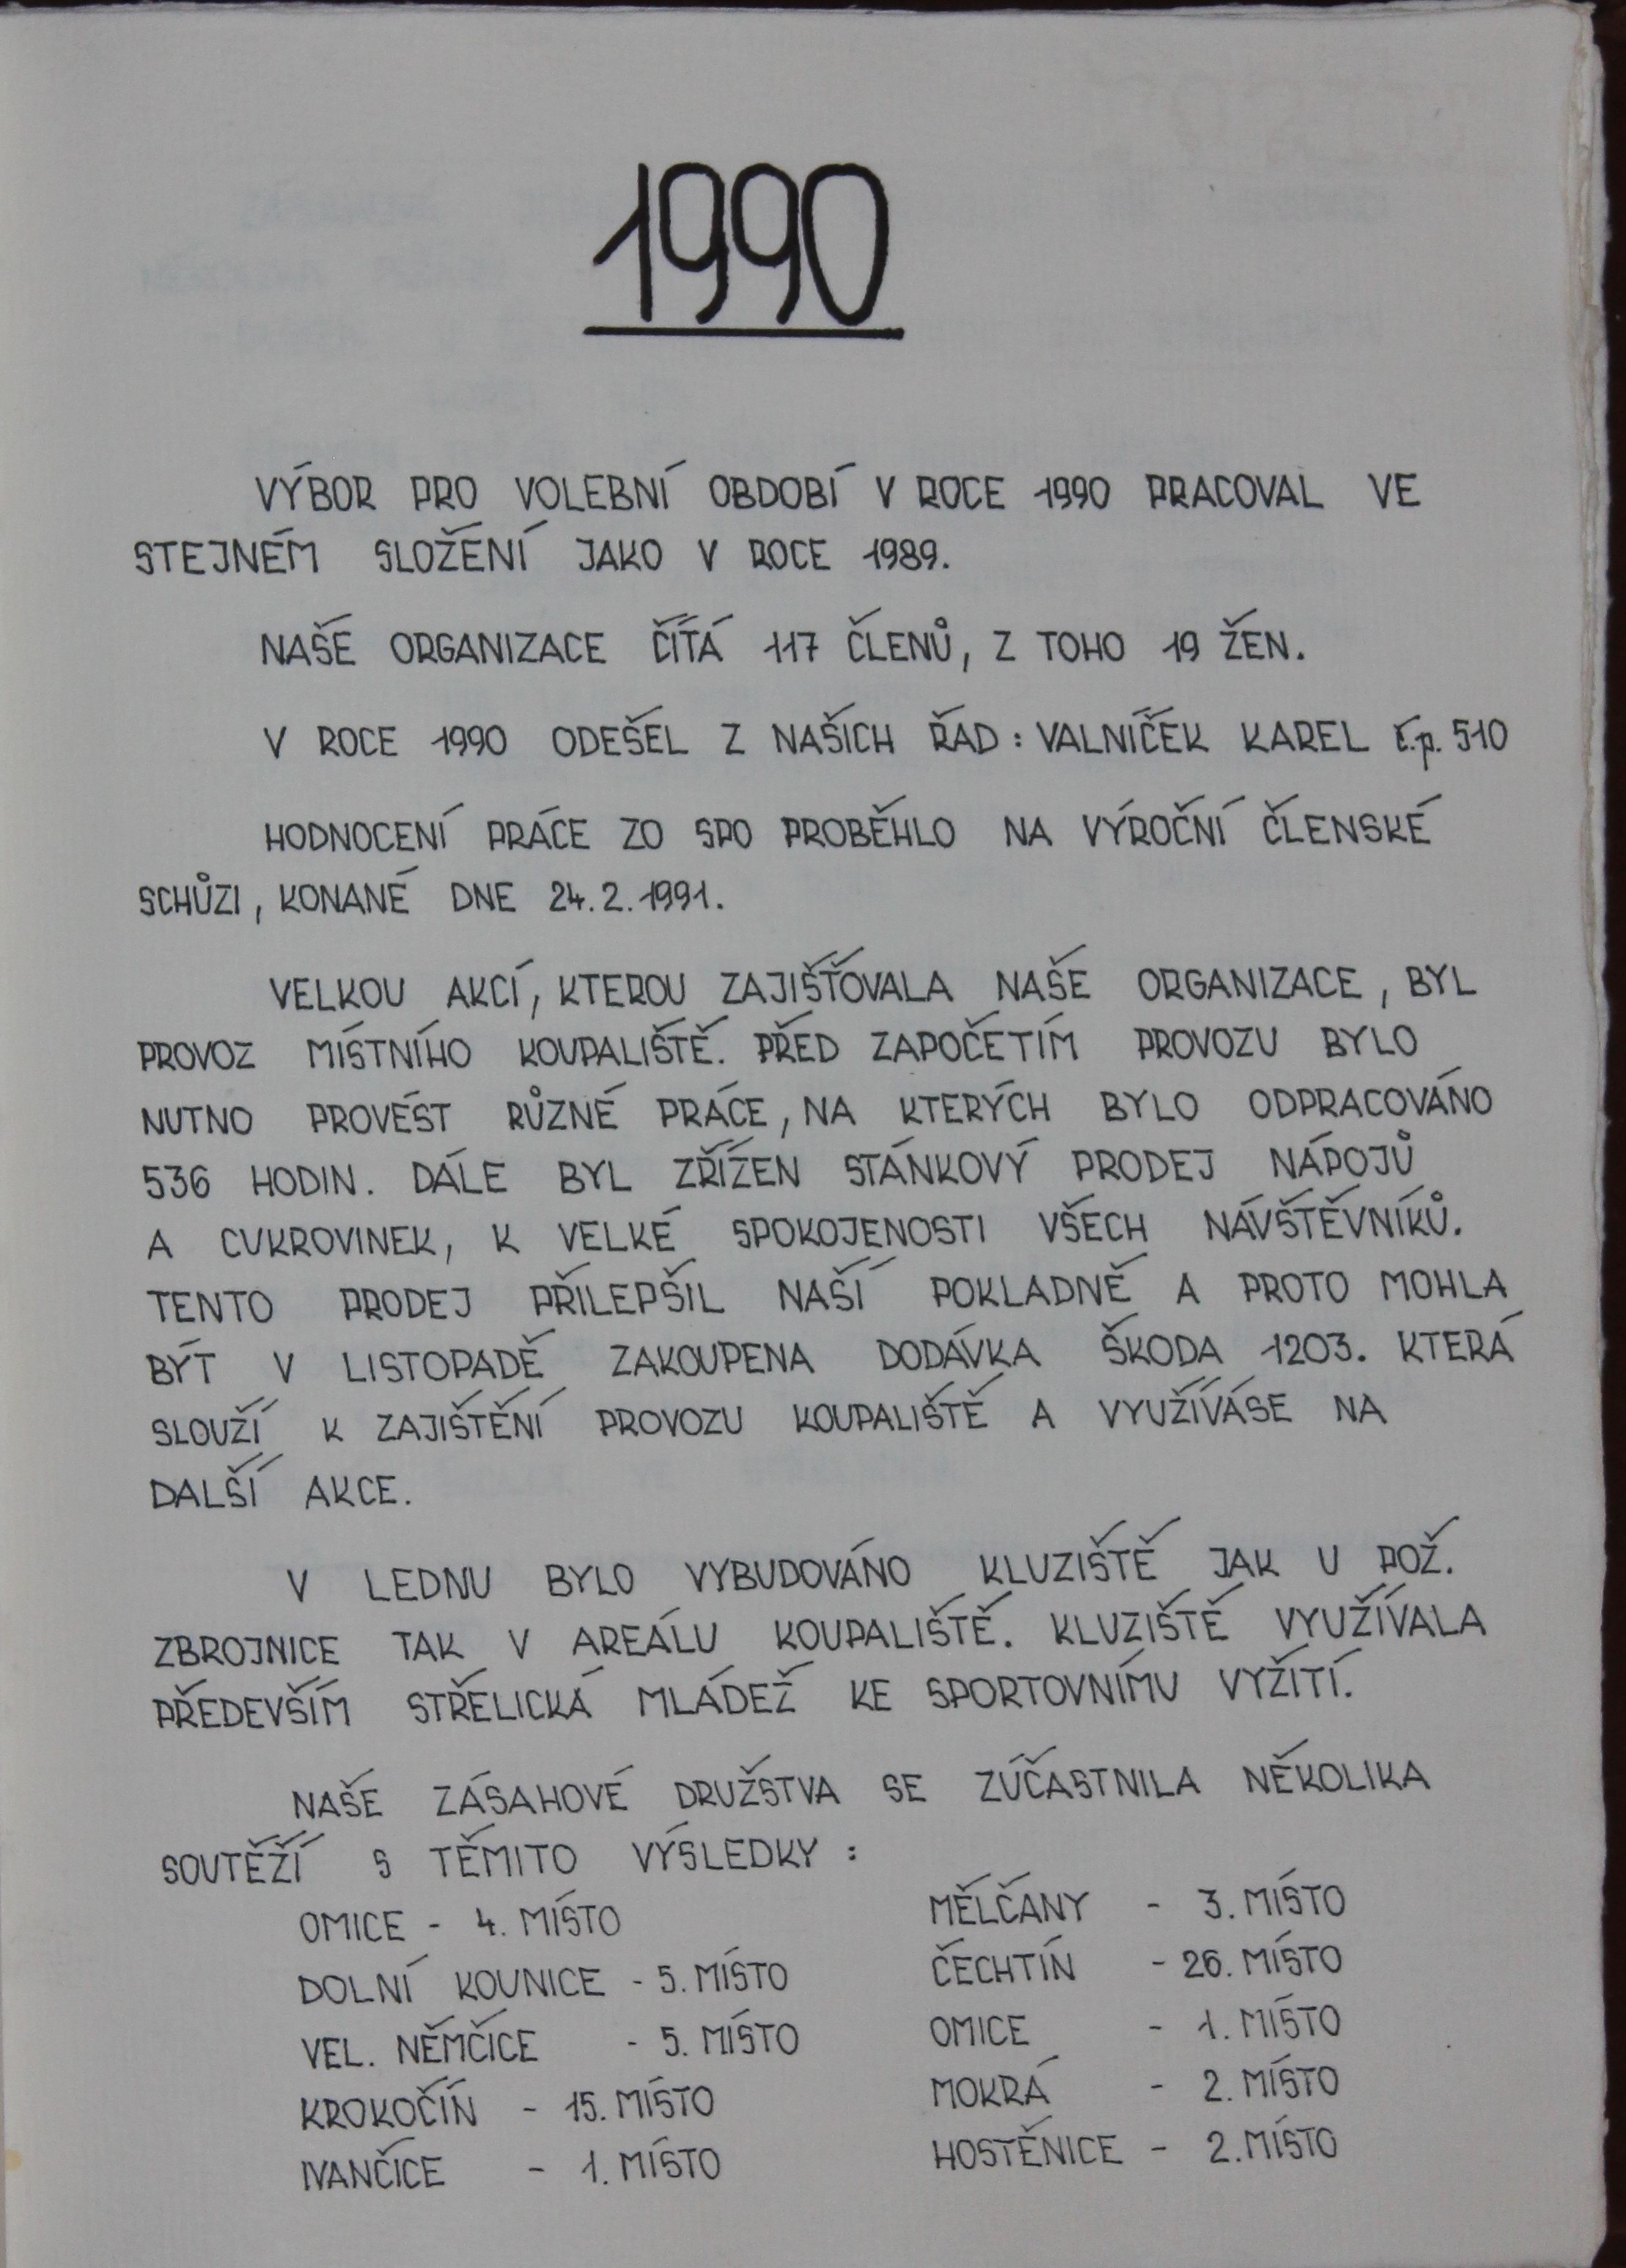 1990
VÝBOR PRO VOLEBNÍ OBDOBÍ V ROCE 1990 PRACOVAL VE
STEJNÉM SLOŽENÍ JAKO V ROCE 1989.
NAŠE ORGANIZACE ČÍTÁ 117 ČLENŮ, Z TOHO 19 ŽEN.
V ROCE 1990 ODEŠEL Z NAŠICH ŘAD: VALNÍČEK KAREL č.p. 510
HODNOCENÍ PRÁCE ZO SPO PROBĚHLO NA VÝROČNÍ ČLENSKÉ
SCHŮZI, KONANÉ DNE 24.2.1991.
VELKOU AKCÍ, KTEROU ZAJIŠŤOVALA NAŠE ORGANIZACE, BYL
PROVOZ MÍSTNÍHO KOUPALIŠTĚ. PŘED ZAPOČETÍM PROVOZU BYLO
NUTNO PROVÉST RŮZNÉ PRÁCE, NA KTERÝCH BYLO ODPRACOVÁNO
536 HODIN. DÁLE BYL ZŘÍŽEN STÁNKOVÝ PRODEJ NÁPOJŮ
A CUKROVINEK, K VELKÉ SPOKOJENOSTI VŠECH NÁVŠTĚVNÍKŮ.
TENTO PRODEJ PŘILEPŠIL NAŠÍ POKLADNĚ A PROTO MOHLA
BÝT V LISTOPADĚ ZAKOUPENA DODÁVKA ŠKODA 1203. KTERÁ
SLOUŽÍ K ZAJIŠTĚNÍ PROVOZU KOUPALIŠTĚ A VYUŽÍVÁSE NA
DALŠÍ AKCE.
V LEDNU BYLO VYBUDOVÁNO KLUZIŠTĚ JAK U POŽ.
ZBROJNICE TAK V AREÁLU KOUPALIŠTĚ. KLUZIŠTĚ VYUŽÍVALA
PŘEDEVŠÍM STŘELICKÁ MLÁDEŽ KE SPORTOVNÍMU VYŽITÍ.
NAŠE ZÁSAHOVÉ DRUŽSTVA SE ZÚČASTNILA NĚKOLIKA
SOUTĚŽÍ S TĚMITO VÝSLEDKY:
OMICE - 4. MÍSTO
DOLNÍ KOUNICE - 5. MÍSTO
VEL. NĚMČICE - 5. MÍSTO
KROKOČÍN - 15. MÍSTO
IVANČICE - 1. MÍSTO
MĚLČANY - 3. MÍSTO
ČECHTÍN - 26. MÍSTO
OMICE - 1. MÍSTO
MOKRÁ - 2. MÍSTO
HOSTĚNICE - 2. MÍSTO